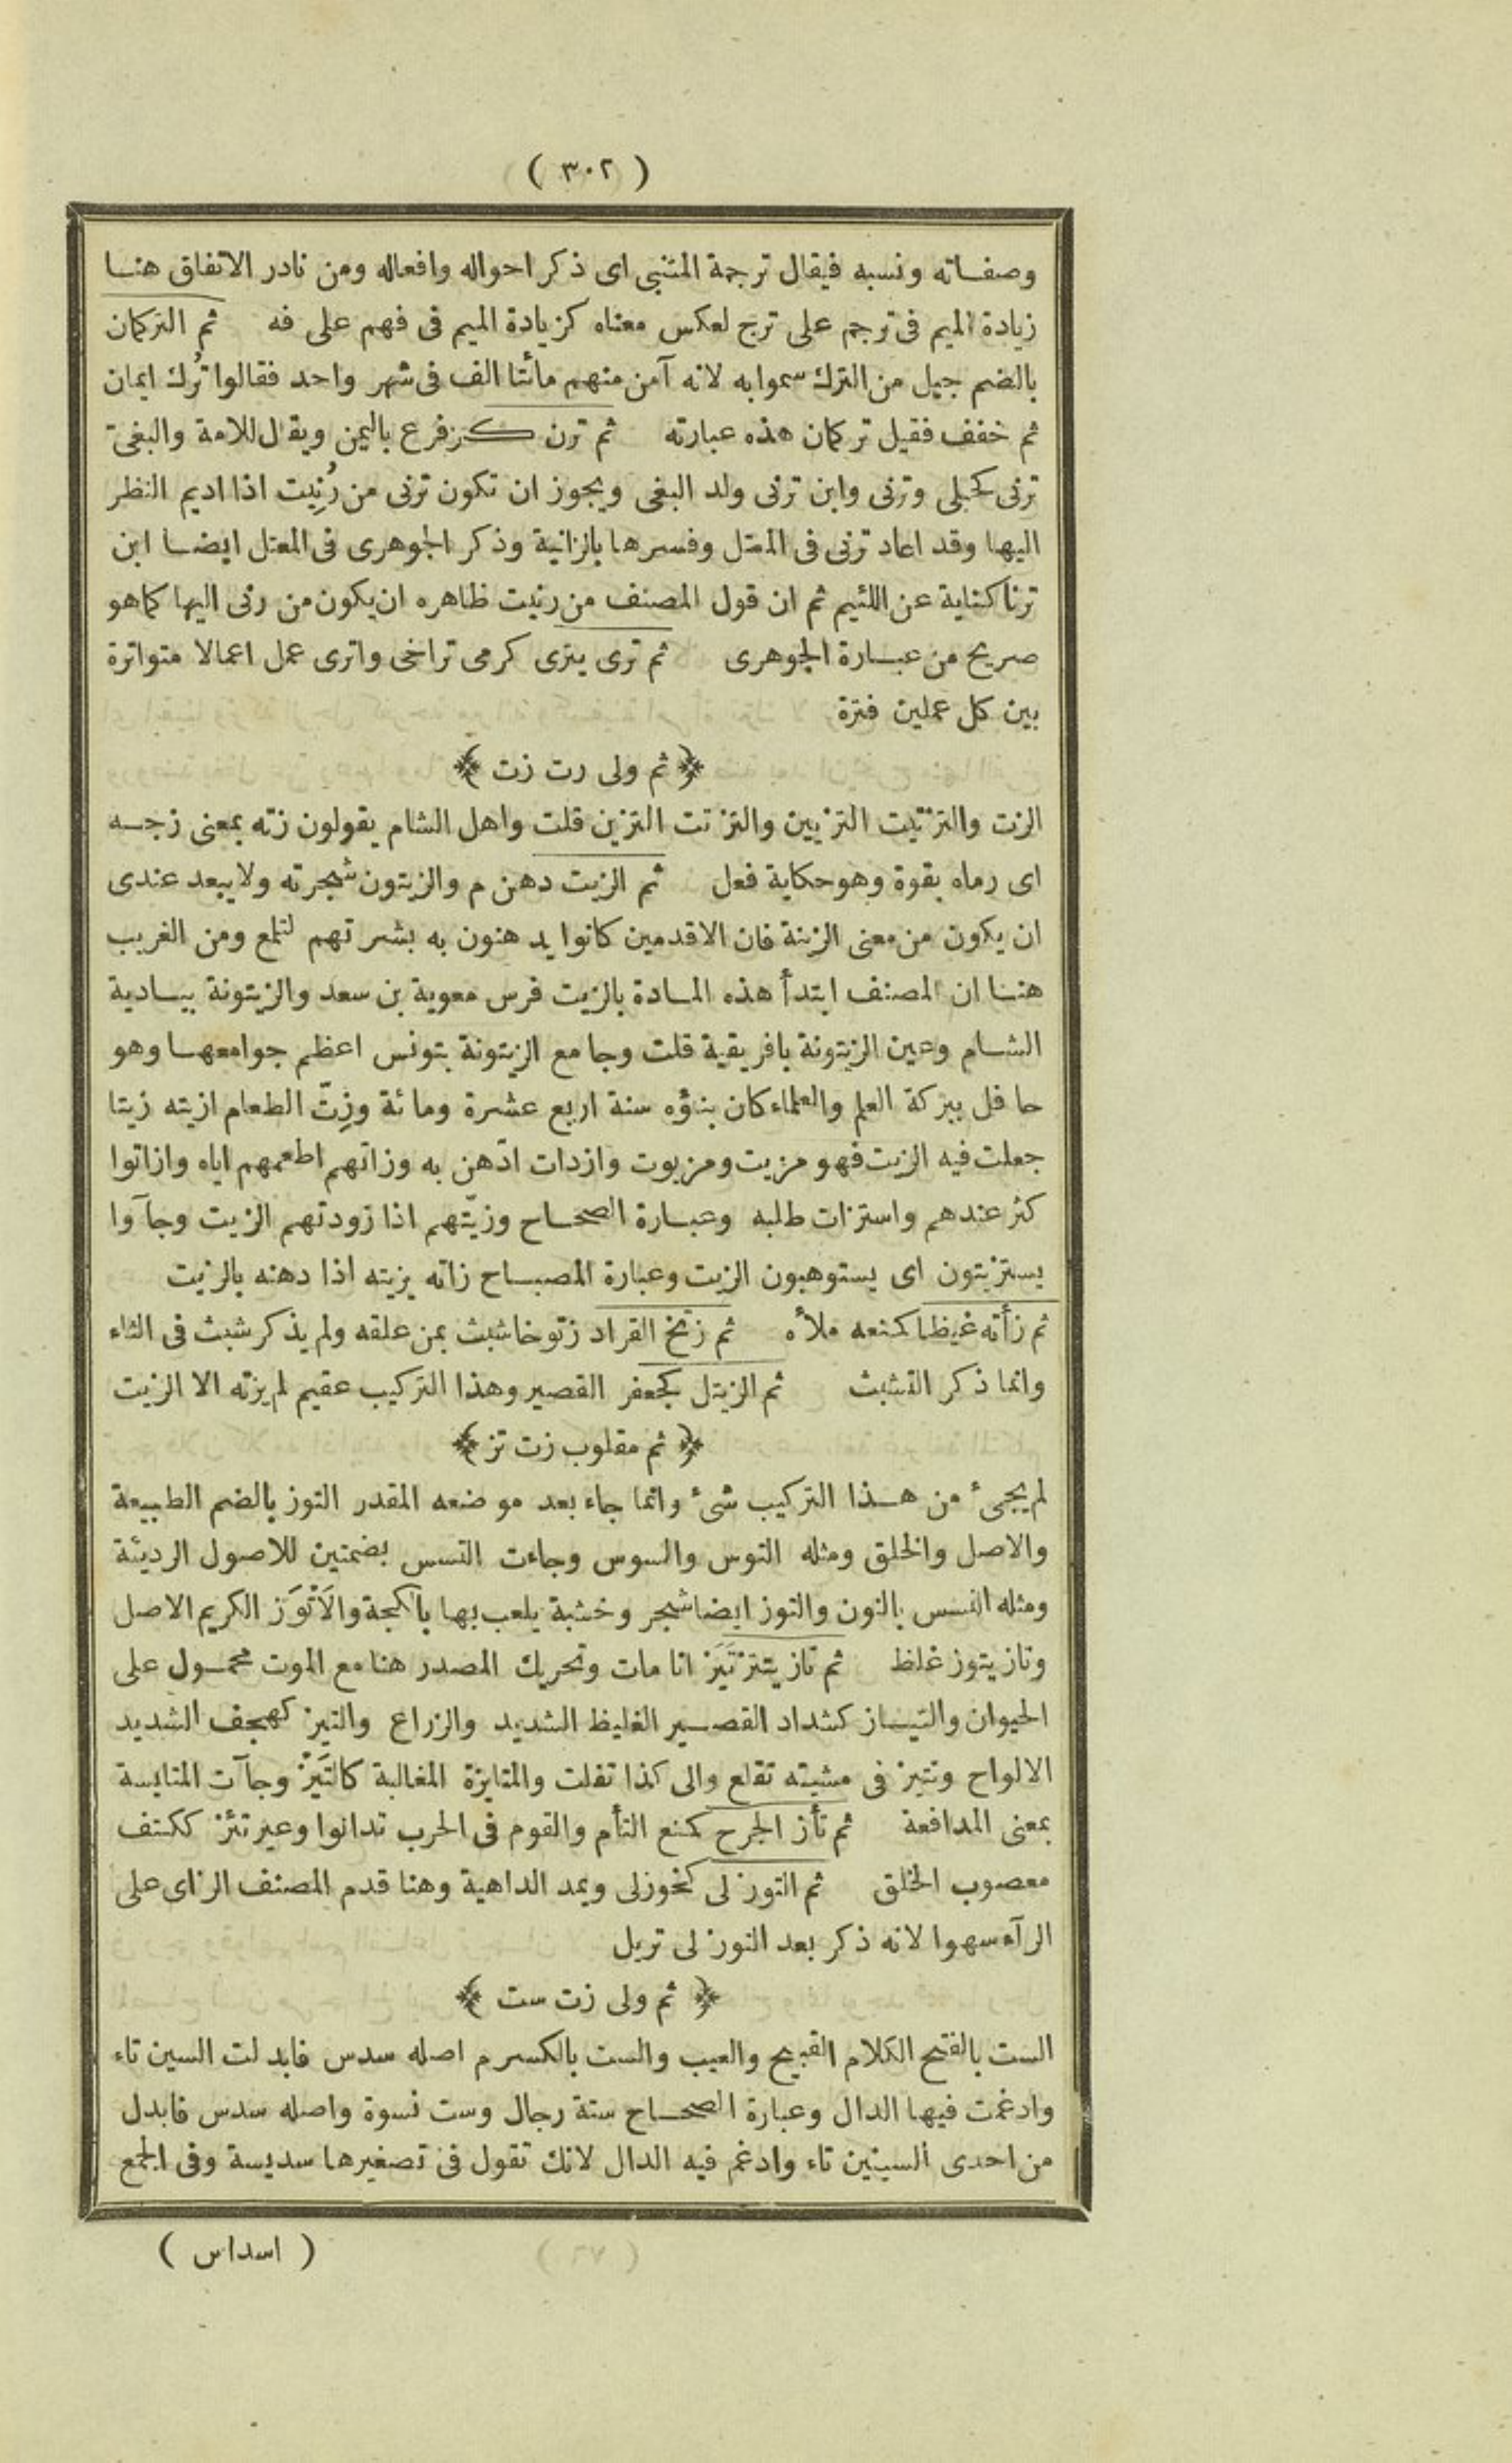 ( ٣٠٢ )
وصفاته ونسبه فيقال ترجمة المتنبى اى ذكر احواله وافعاله ومن نادر الاتفاق هنا
زيادة الميم فى ترجم على ترج لعكس معناه كزيادة الميم فى فهم على فه ثم التركمان
بالضم جيل من الترك سموا به لانه آمن منهم مائتا الف فى شهر واحد فقالوا تُرك ايمان
ثم خفف فقيل تركمان هذه عبارته ثم ترن كزفر ع باليمن ويقال للامة والبغىّ
ترنى كحبلى وترنى وابن ترنى ولد البغى ويجوز ان تكون ترنى من رُنِيت اذا اديم النظر
اليها وقد اعاد ترنى فى المعتل وفسرها بالزانية وذكر الجوهرى فى المعتل ايضا ابن
ترنا كناية عن اللئيم ثم ان قول المصنف من رنيت ظاهره ان يكون من رنى اليها كما هو
صريح من عبارة الجوهرى ثم ترى يترى كرمى تراخى واترى عمل اعمالا متواترة
بين كل عملين فترة
﴿ ثم ولى رت زت ﴾
الزت والتزتيت التزيين والتزتت التزين قلت واهل الشام يقولون زته بمعنى زجه
اى رماه بقوة وهو حكاية فعل ثم الزيت دهن م والزيتون شجرته ولا يبعد عندى
ان يكون من معنى الزينة فان الاقدمين كانوا يدهنون به بشرتهم لتلمع ومن الغريب
هنا ان المصنف ابتدأ هذه المادة بالزيت فرس معوية بن سعد والزيتونة ببادية
الشام وعين الزيتونة بافريقية قلت وجامع الزيتونة بتونس اعظم جوامعها وهو
حافل ببركة العلم والعلماء كان بنؤه سنة اربع عشرة ومائة وزِتّ الطعام ازيته زيتا
جعلت فيه الزيت فهو مزيت ومزيوت وازدات ادّهن به وزاتهم اطعمهم اياه وازاتوا
كثر عندهم واستزات طلبه وعبارة الصحاح وزيّتهم اذا زودتهم الزيت وجآوا
يستزيتون اى يستوهبون الزيت وعبارة المصباح زاته يزيته اذا دهنه بالزيت
ثم زأته غيظا كمنعه ملأه ثم زتخ القراد زتوخا شبث بمن علقه ولم يذكر شبث فى الثاء
وانما ذكر التشبث ثم الزيتل كجعفر القصير وهذا التركيب عقيم لم يزته الا الزيت
﴿ ثم مقلوب زت تز ﴾
لم يجئ من هذا التركيب شئ وانما جاء بعد موضعه المقدر التوز بالضم الطبيعة
والاصل والخلق ومثله التوس والسوس وجاءت التسس بضمتين للاصول الرديئة
ومثله النسس بالنون والتوز ايضا شجر وخشبة يلعب بها بالكجة والاَتْوَز الكريم الاصل
وتاز يتوز غلظ ثم تاز يتيز تَيَز انا مات وتحريك المصدر هنا مع الموت محمول على
الحيوان والتياز كشداد القصير الغليظ الشديد والزراع والتيز كهجف الشديد
الالواح وتتيز فى مشيته تقلع والى كذا تفلت والمتايزة المغالبة كالتَيْز وجآت المتايسة
بمعنى المدافعة ثم تأز الجرح كمنع التأم والقوم فى الحرب تدانوا وعير تئز ككتف
معصوب الخلق ثم التوزلى كخوزلى ويمد الداهية وهنا قدم المصنف الزاى على
الرآء سهوا لانه ذكر بعد التوزلى تربل
﴿ ثم ولى زت ست ﴾
الست بالفتح الكلام القبيح والعيب والست بالكسر م اصله سدس فابدلت السين تاء
وادغمت فيها الدال وعبارة الصحاح ستة رجال وست نسوة واصله سدس فابدل
من احدى السينين تاء وادغم فيه الدال لانك تقول فى تصغيرها سديسة وفى الجمع
( اسداس )